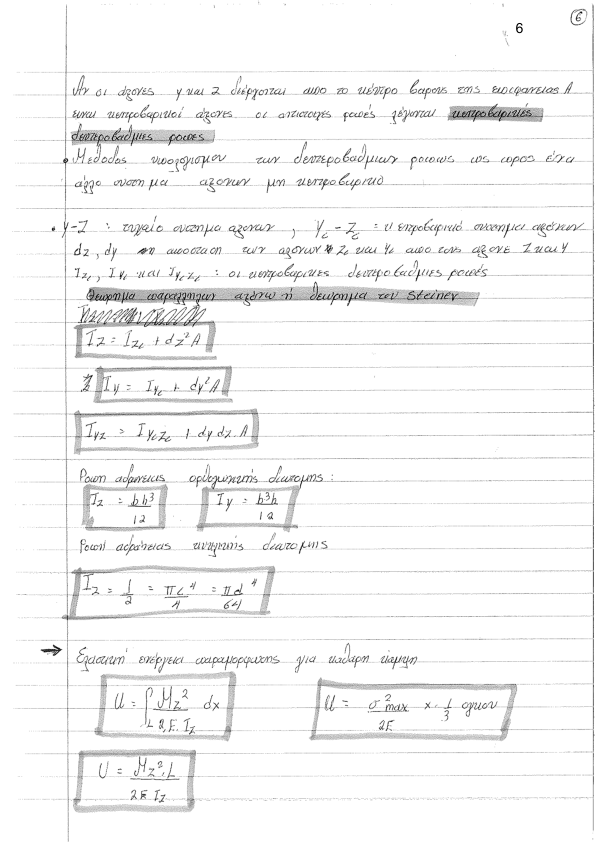 6
6
Αν οι άξονες y και z διέρχονται απο το κέντρο βαρους της επιφανειας A
ειναι κεντροβαρικοί άξονες οι αντιστοιχες ροπές λέγονται κεντροβαρικές
δευτεροβαθμιες ροπες
• Μεθοδος υπολογισμου των δευτεροβαθμιων ροπων ως προς ένα
άλλο συστημα αξονων μη κεντροβαρικο
• Y-Z : τυχαίο συστημα αξονων , Yc - Zc = κεντροβαρικό συστημα αξόνων
dz, dy η αποσταση των αξονων Zc και Yc απο τους αξονε Z και Y
Izc, Iyc και Iyczc : οι κεντροβαρικες δευτεροβαθμιες ροπές
Θεωρημα παραλληλων αξόνων ή θεωρημα του Steiner
Iz = Izc + dz² A
Iy = Iyc + dy² A
Iyz = Iyczc + dy dz. A
Ροπη αδράνειας ορθογωνικής διατομης :
Iz = bh³/12 Iy = b³h/12
Ροπή αδράνειας κυκλικής διατομης
Iz = 1/2 = πc⁴/4 = πd⁴/64
→ Ελαστική ενέργεια παραμορφωσης για καθαρη καμψη
U = ∫L Mz²/2.E.Iz dx U = σ²max/2E x. 1/3 ογκου
U = Mz².L/2E Iz